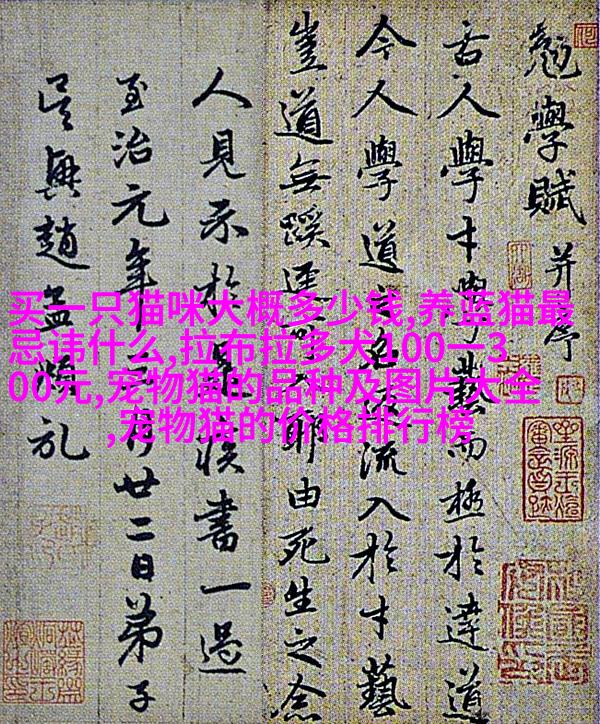 买一只猫咪大概多少钱,养蓝猫最
忌讳什么,拉布拉多犬100一3
00元,宠物猫的品种及图片大全
,宠物猫的价格排行榜
勉學賦并序
古人學才學藝而極於達道
今人學道流入於才藝
豈道無蹊逕耶由死生之念
人見示於書一過
至治元年廿二日弟子
吳興趙孟頫礼